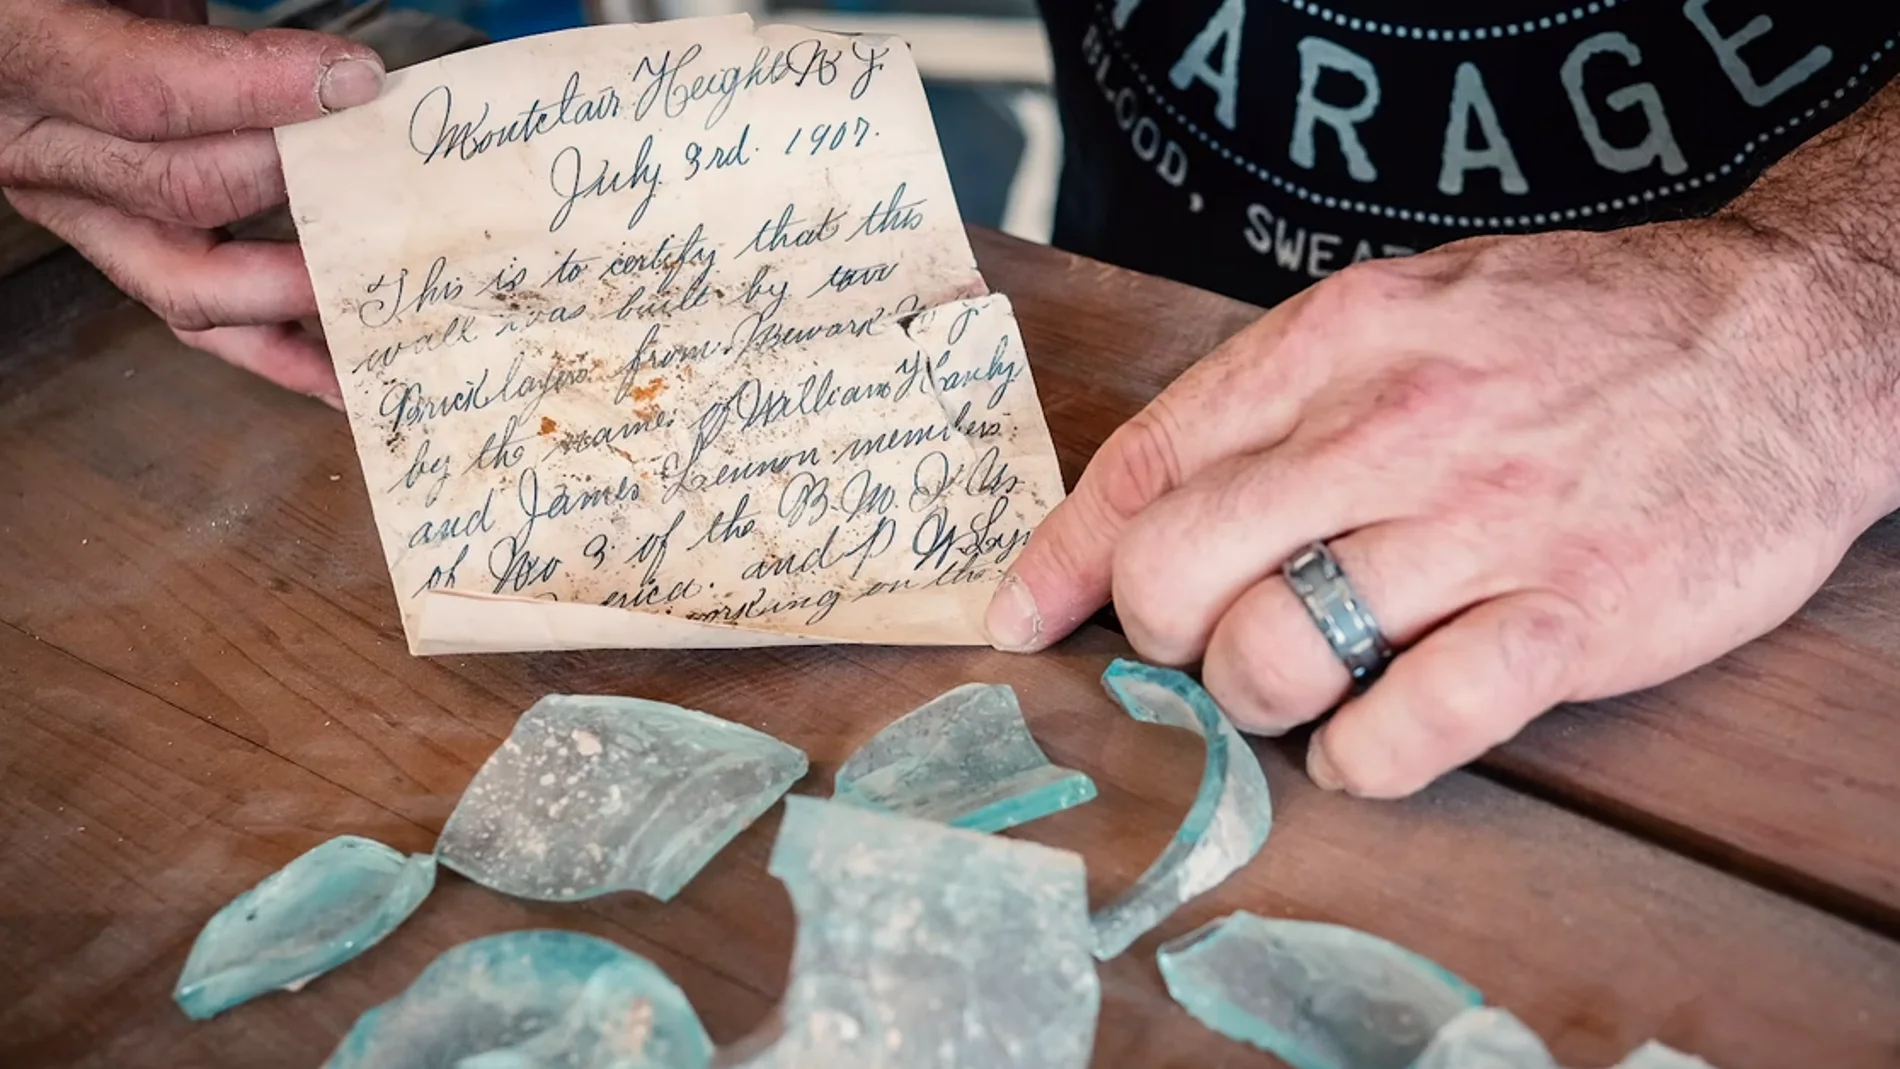 Montclair Heights N J.
July 3rd. 1907.
This is to certify that this
wall was built by two
Bricklayers from Newark N J.
by the names of William Hanly
and James Lennon members.
of No 3 of the B. M. I U.
erica. and P
working on the
GARAGE
BLOOD, SWEAT